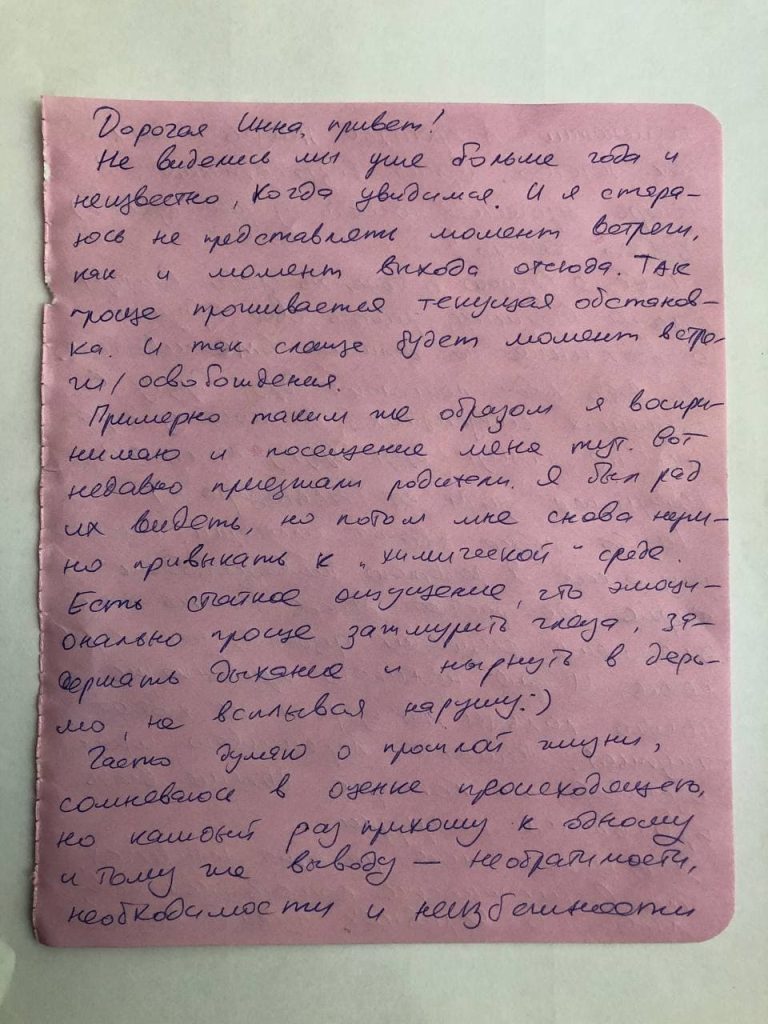 Дорогая Инна, привет!
Не виделись мы уже больше года и
неизвестно, когда увидимся. И я стара-
юсь не представлять момент встречи,
как и момент выхода отсюда. Так
проще проживается текущая обстанов-
ка. И так слаще будет момент встре-
чи/освобождения.
Примерно таким же образом я воспри-
нимаю и посещение меня тут. Вот
недавно приезжали родители. Я был рад
их видеть, но потом мне снова нуж-
но привыкать к „химической" среде.
Есть стойкое ощущение, что эмоци-
онально проще зажмурить глаза, за-
держать дыхание и нырнуть в дерь-
мо, не всплывая наружу:)
Часто думаю о прошлой жизни,
сомневаюсь в оценке происходящего,
но каждый раз прихожу к одному
и тому же выводу — необратимости,
необходимости и неизбежности